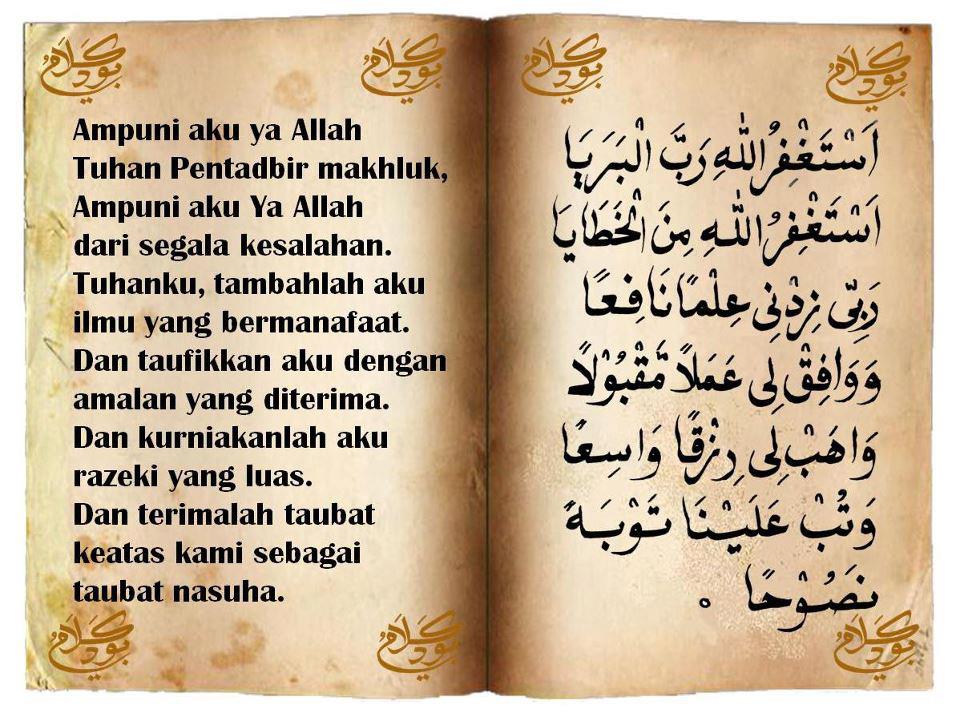 Ampuni aku ya Allah
Tuhan Pentadbir makhluk,
Ampuni aku Ya Allah
dari segala kesalahan.
Tuhanku, tambahlah aku
ilmu yang bermanafaat.
Dan taufikkan aku dengan
amalan yang diterima.
Dan kurniakanlah aku
razeki yang luas.
Dan terimalah taubat
keatas kami sebagai
taubat nasuha.
اَسْتَغْفِرُ اللهِ رَبَّ الْبَرَيَا
اَسْتَغْفِرُ اللهِ مِنَ الْخَطَايَا
رَبِّى زِدْنِى عِلْمًا نَافِعًا
وَوَافِقْ لِى عَمَلاً مَّقْبُوْلاً
وَاهَبْ لِى رِزْقًا وَاسِعًا
وَتُبْ عَلَيْنَا تَوْبَةً
نَصُوْحًا ۰